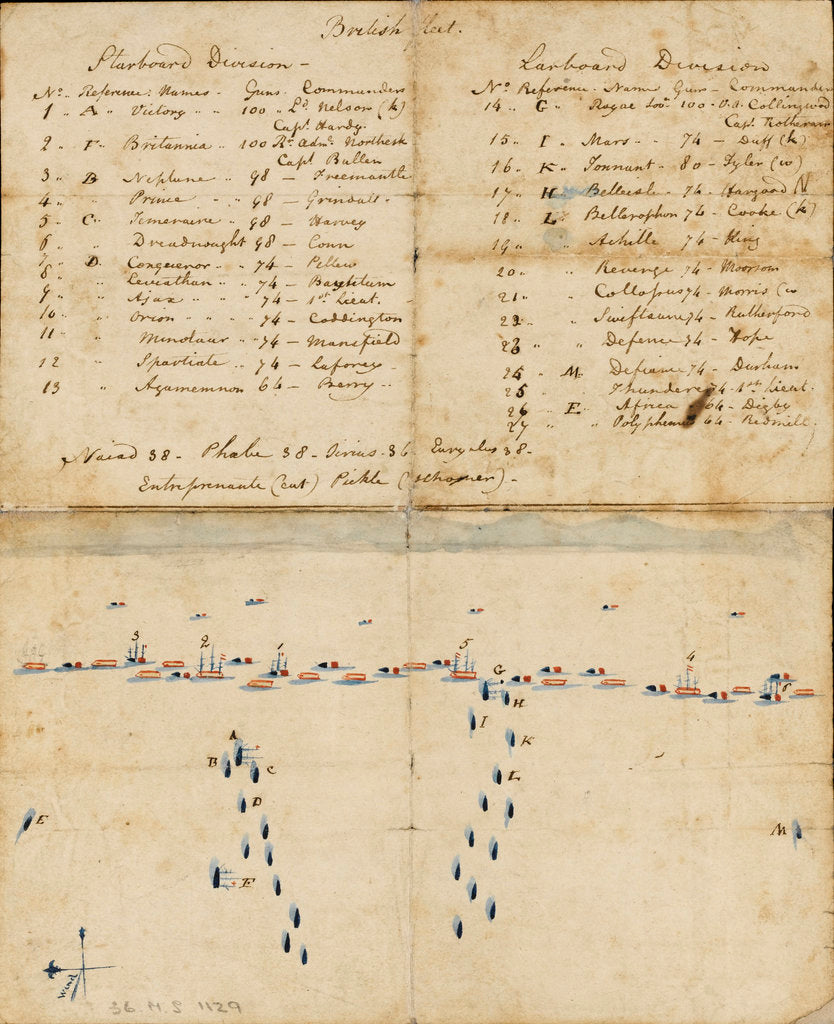 British Fleet.
Starboard Division -
No. Reference. Names - Guns. Commanders
1 " A " Victory " " 100 " Ld. Nelson (k)
Capt. Hardy.
2 " F " Britannia " 100 Rr. Adm. Northesk
Capt. Bullen
3 " B Neptune " 98 - Freemantle
4 " " Prince " " 98 - Grindall -
5 " C " Temeraire " 98 - Harvey
6 " " Dreadnought 98 - Conn
7 " D Conqueror " 74 - Pellew
8 " Leviathan " 74 - Bayntum
9 " " Ajax " " " 74 - 1st Lieut.
10 " " Orion " " " 74 - Coddington
11 " Minotaur " " 74 - Mansfield
12 " Spartiate " 74 - Laforey -
13 " Agamemnon 64 - Berry -
Larboard Division
No. Reference. Name Guns - Commanders
14 " G " Royae Sov: 100 - V.A. Collingwood
Capt. Rotheram
15 " I " Mars " " 74 - Duff (k)
16 " K " Tonnant " 80 - Tyler (w)
17 " H Belleisle " 74 - Hargood
18 " L Bellerophon 74 - Cooke (k)
19 " " Achille 74 - King
20 " " Revenge 74 - Moorsom
21 " " Collossus 74 - Morris (w
22 " " Swiftsure 74 - Rutherford
23 " " Defence 74 - Hope
24 " M. Defiance 74 - Durham
25 " Thundere 74 - 1st Lieut.
26 " E " Africa 64 - Digby
27 " " Polyphemus 64 - Redmill.
Naiad 38 - Phœbe 38 - Sirius - 36 Euryalus 38 -
Entreprenante (cut) Pickle (schooner) -
3 2 1 5 4 6
G
H
I
K
A
B C
L
D
E
M
F
Wind
36. M.S. 1129